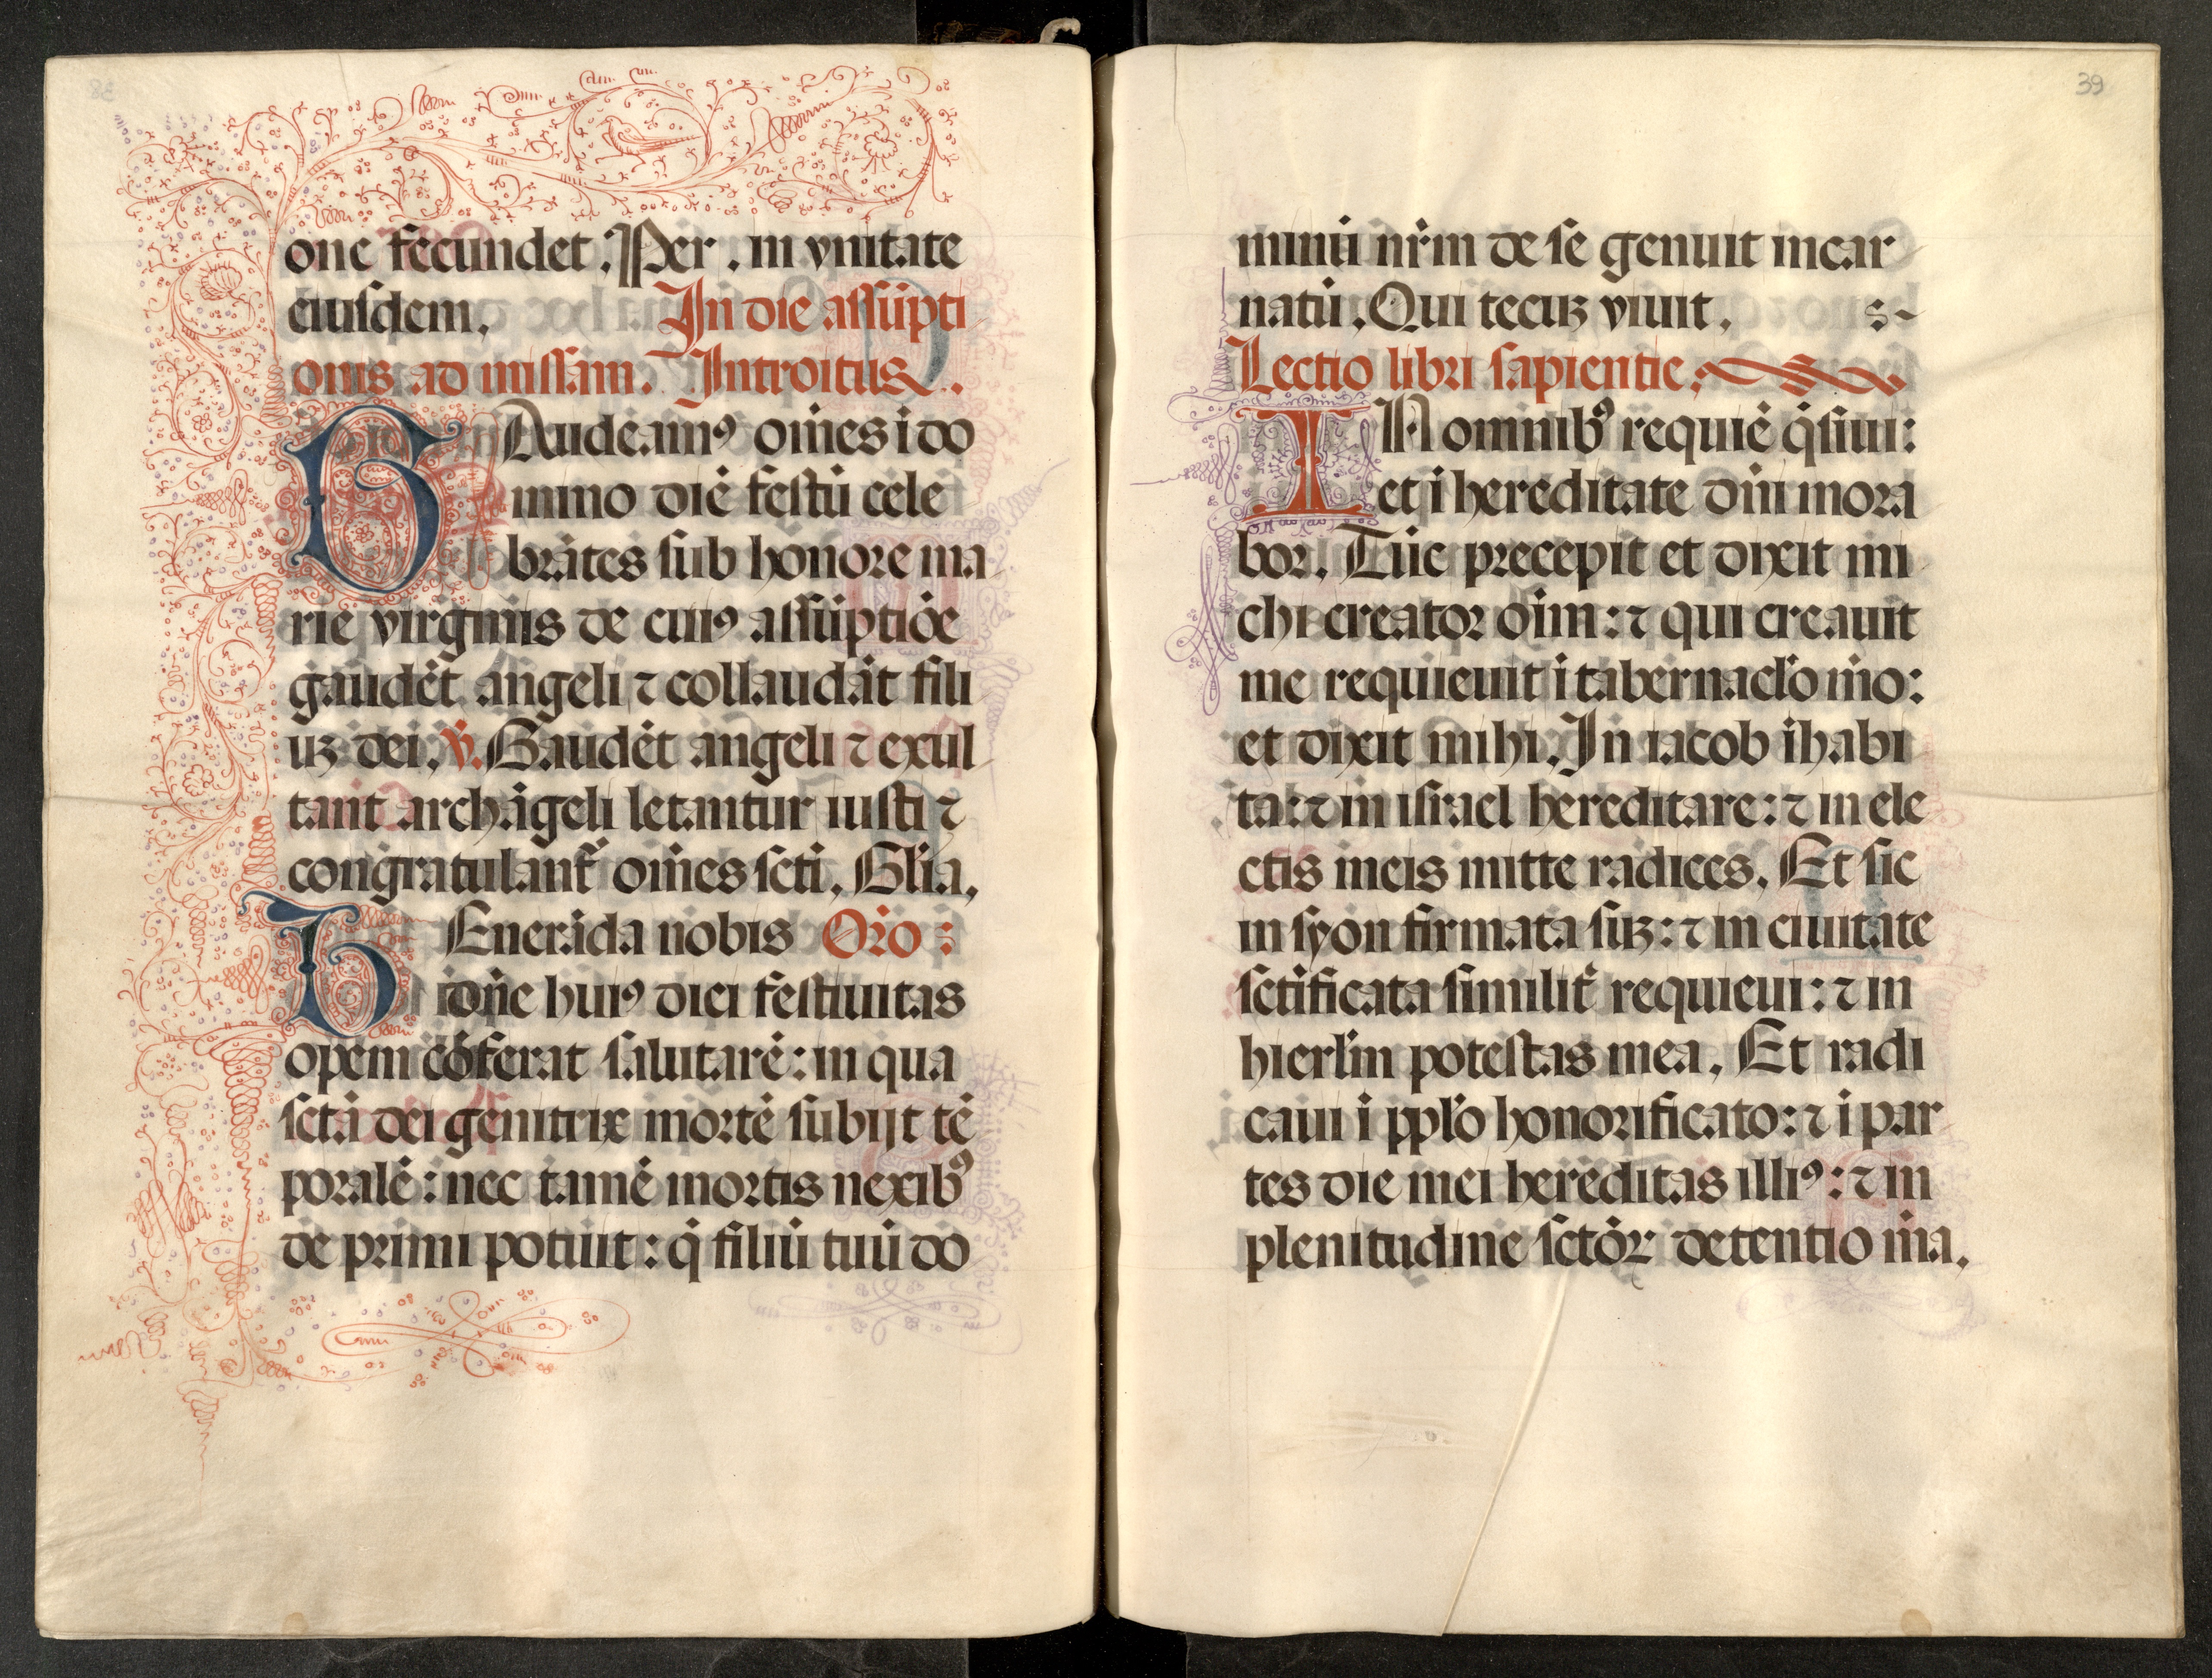 one fecundet. Per. in vnitate
eiusdem. In die assūpti
onis ad missam. Introitus.
GAudeamꝰ oīnes ī do
mino diē festū cele
brātes sub honore ma
rie virginis de cuiꝰ assūptiōe
gaudēt angeli ⁊ collaudāt fili
uꝫ dei. ℣. Gaudēt angeli ⁊ exul
tant archāgeli letantur iusti ⁊
congratulant᷑ oīnes scti. Glīa.
VEnerāda nobis Orō :
dn̄e huiꝰ diei festiuitas
opem cōferat salutarē: in qua
sctā dei genitrix mortē subijt tē
poralē: nec tamē mortis nexibꝰ
deprimi potuit: q̄ filiū tuū do
39
minū nr̄m de se genuit incar
natū. Qui tecuꝫ viuit.
Lectio libri sapientie.
IN omnibꝰ requiē q̄siui:
et ī hereditate dn̄i mora
bor. Tūc precepit et dixit mi
chi creator oīm: ⁊ qui creauit
me requieuit ī tabernacl̄o mō:
et dixit mihi. In iacob īhabi
ta: ⁊ in israel hereditare: ⁊ in ele
ctis meis mitte radices. Et sic
in syon firmata suꝫ: ⁊ in ciuitate
sctificata similit᷑ requieui: ⁊ in
hierl̄m potestas mea. Et radi
caui ī ppl̄o honorificato: ⁊ ī par
tes die mei hereditas illiꝰ: ⁊ in
plenitudine sctōꝝ detentio mā.